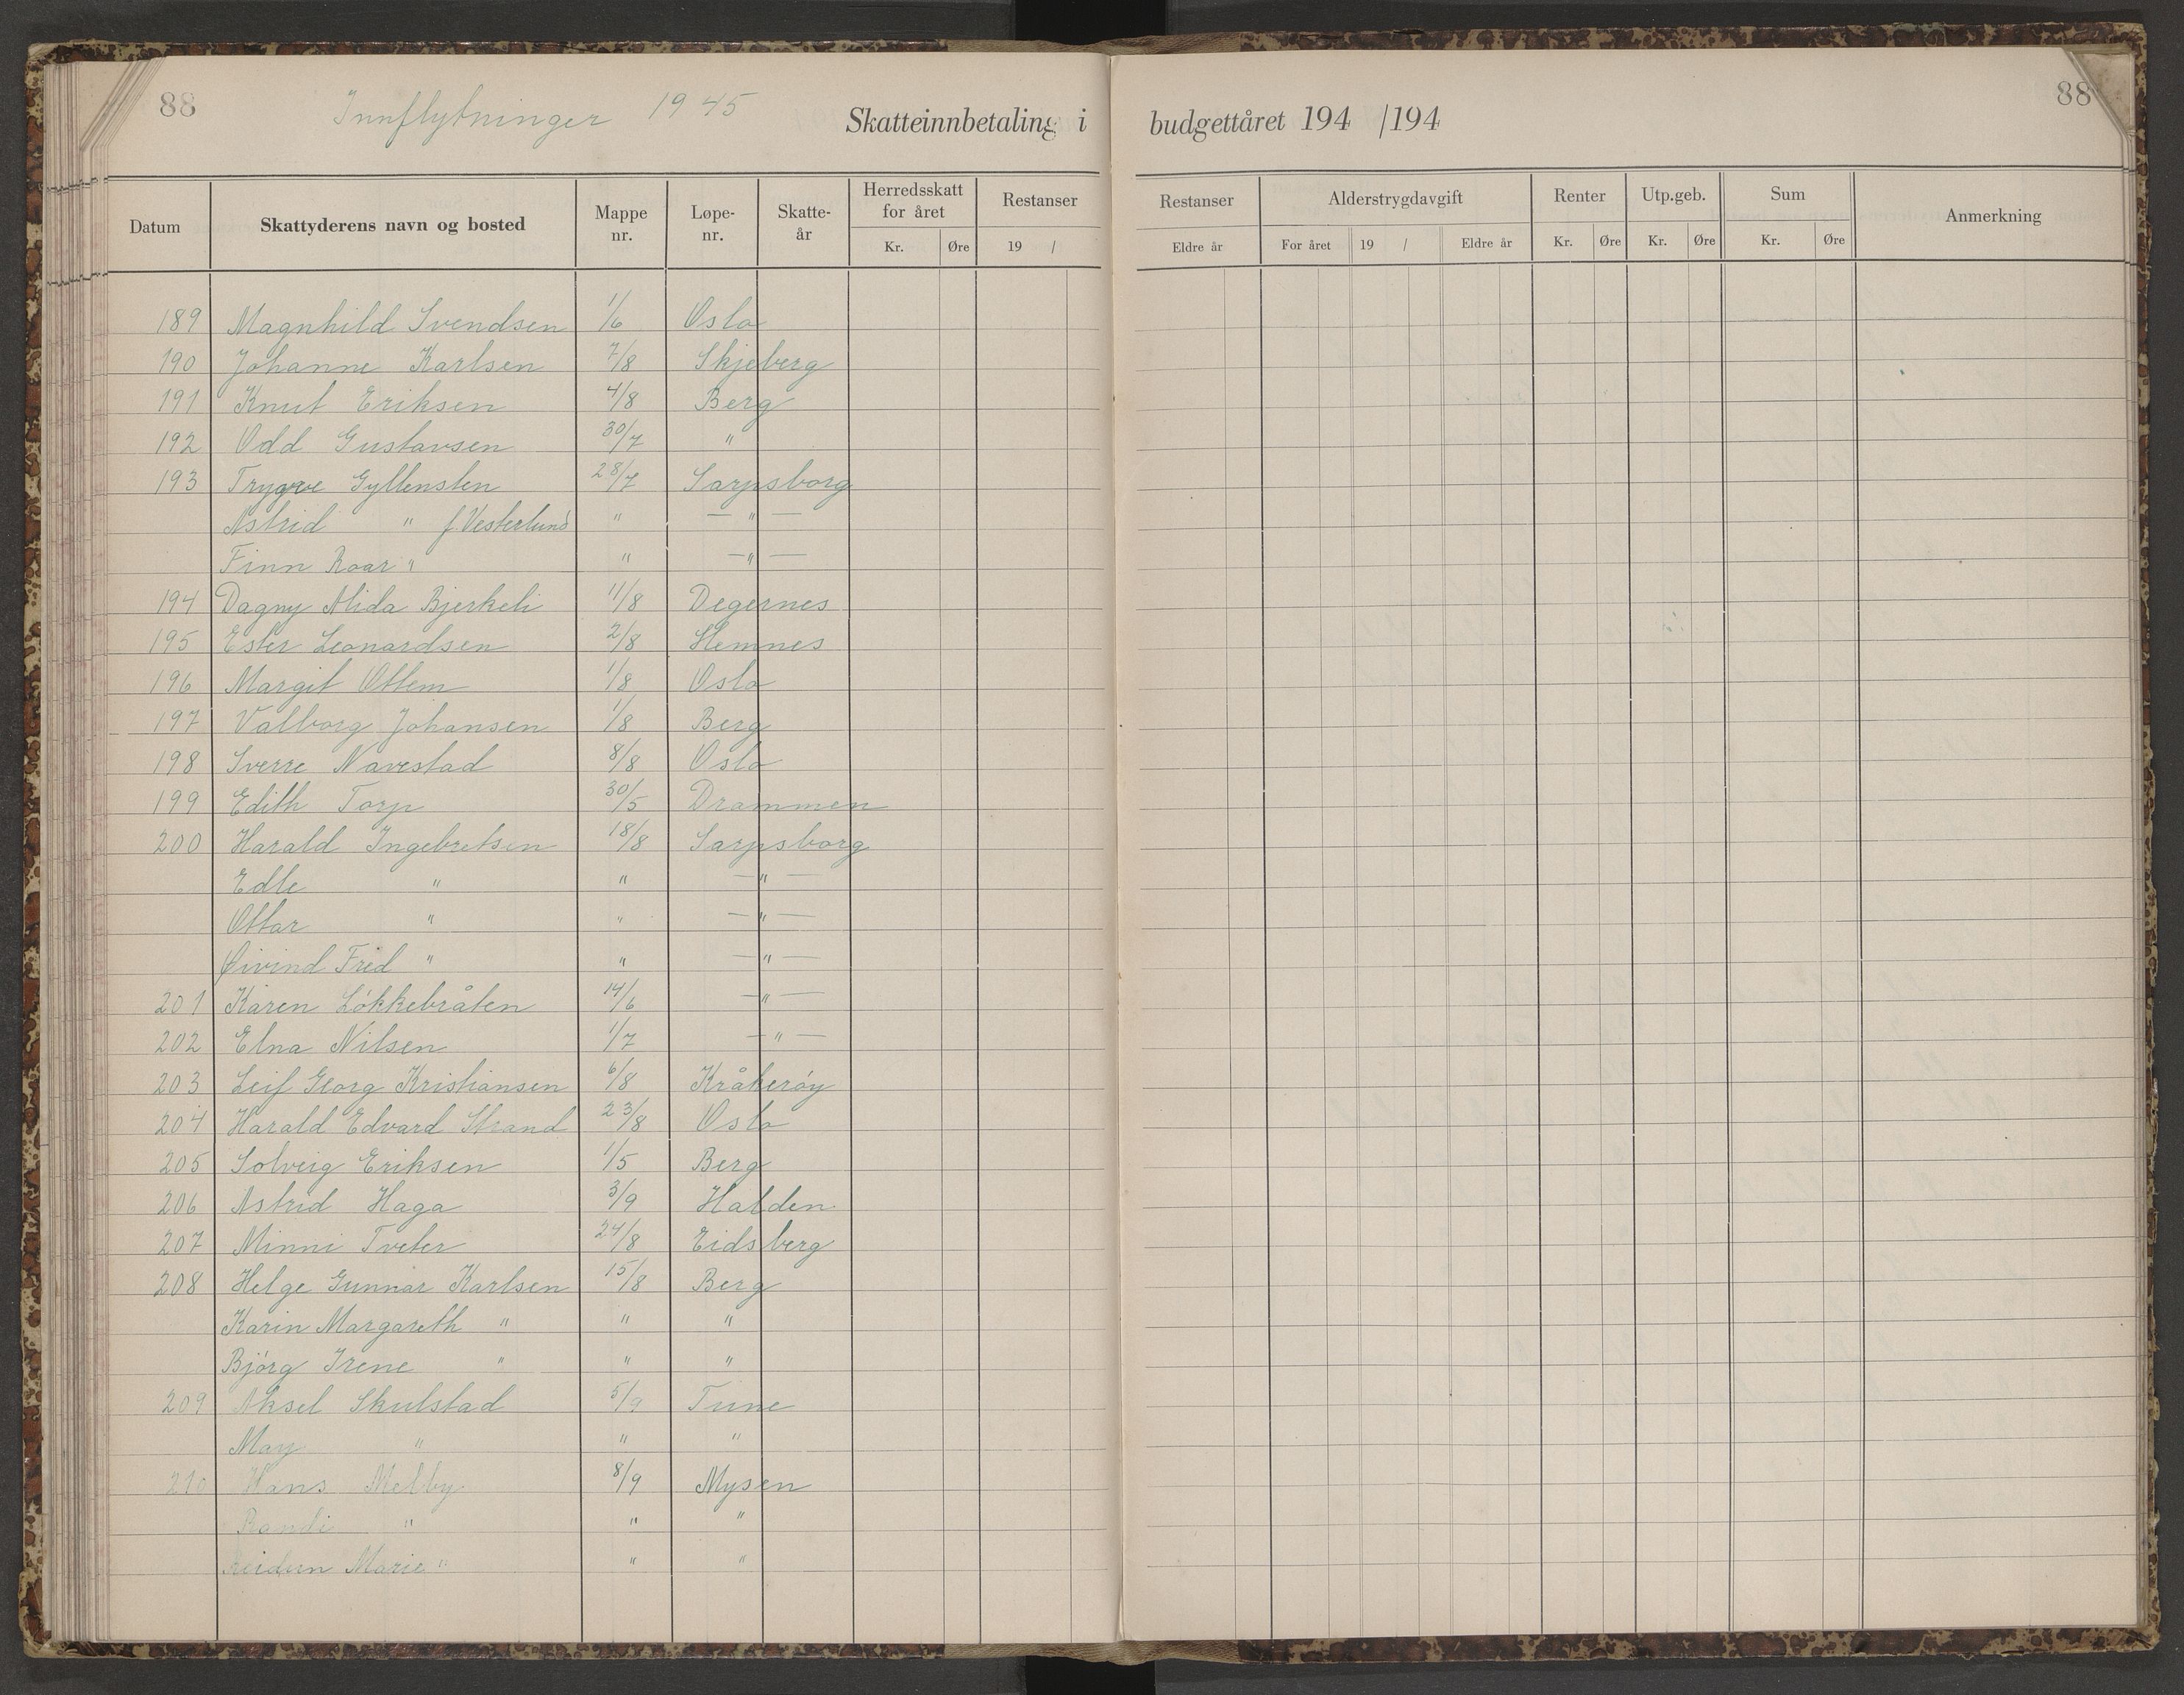 88 Innflytninger 1945 Skatteinnbetaling i budgettåret 194 /194 88
Datum Skattyderens navn og bosted Mappe nr. Løpe-nr. Skatte-år Herredsskatt for året Kr. Øre Restanser 19 / Restanser Eldre år Alderstrygdavgift For året 19 / Eldre år Renter Kr. Øre Utp.geb. Kr. Øre Sum Kr. Øre Anmerkning
189 Magnhild Svendsen 1/6 Oslo
190 Johanne Karlsen 7/8 Skjeberg
191 Knut Eriksen 4/8 Berg
192 Odd Gustavsen 30/7 "
193 Trygve Gyllensten 28/7 Sarpsborg
Astrid " f. Vesterlund " — " —
Finn Roar " " — " —
194 Dagny Alida Bjerkeli 11/8 Degernes
195 Ester Leonardsen 2/8 Hemnes
196 Margit Ottem 1/8 Oslo
197 Valborg Johansen 1/8 Berg
198 Sverre Navestad 8/8 Oslo
199 Edith Torp 30/5 Drammen
200 Harald Ingebretsen 18/8 Sarpsborg
Edle " " — " —
Ottar " " — " —
Øivind Fred " " — " —
201 Karen Løkkebråten 14/6 — " —
202 Elna Nilsen 1/7 — " —
203 Leif Georg Kristiansen 6/8 Kråkerøy
204 Harald Edvard Strand 23/8 Oslo
205 Solveig Eriksen 1/5 Berg
206 Astrid Haga 3/9 Halden
207 Minni Tveter 24/8 Eidsberg
208 Helge Gunnar Karlsen 15/8 Berg
Karin Margareth " " "
Bjørg Irene " " "
209 Aksel Skulstad 5/9 Tune
May " " "
210 Hans Melby 8/9 Mysen
Randi " " "
Reidun Marie " " "